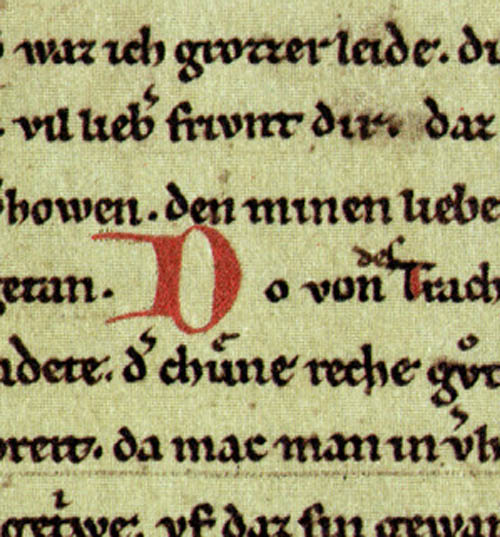 waz ich grozzer leide. di
vil lieb͛ frivnt dir. daz
howen. den minen liebe
getan. Do von des Trach
ndete. d͛ chůne reche gůt
breit. da mac man in v͛h
getrwe. vf daz sin gewan